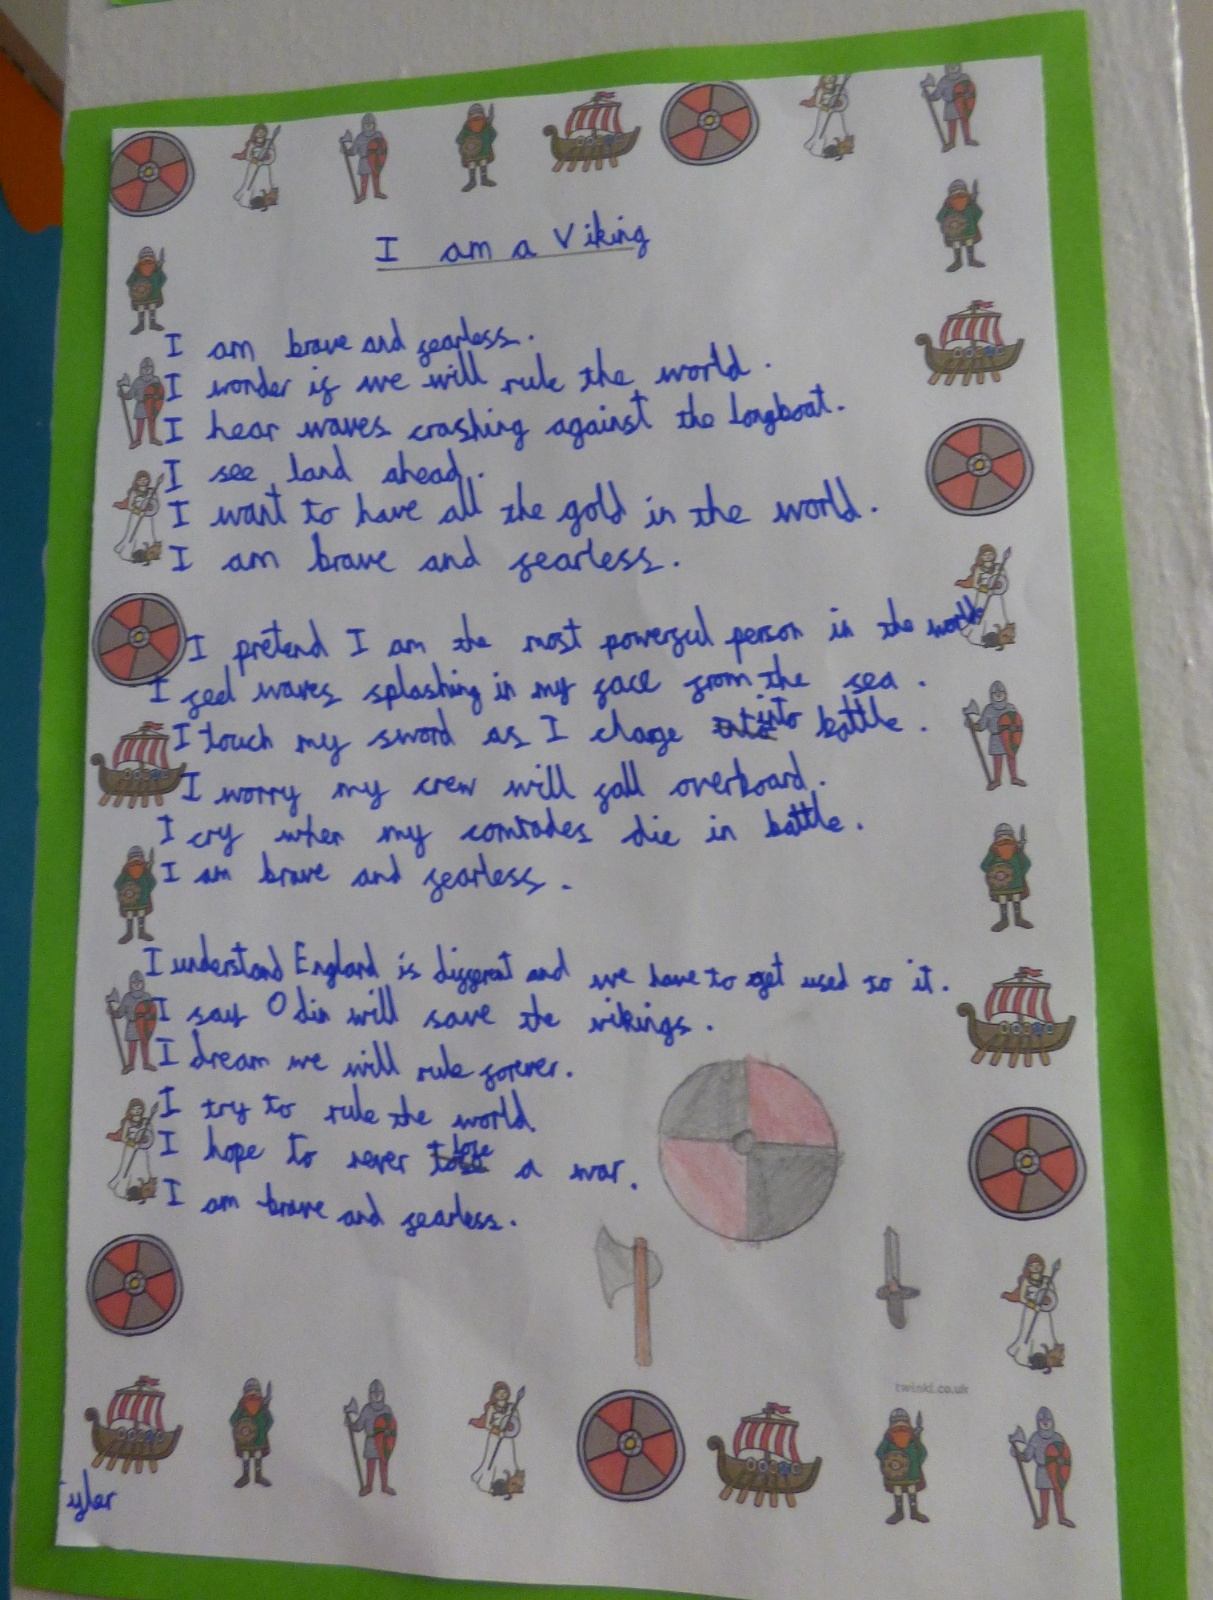 I am a Viking
I am brave and fearless.
I wonder if we will rule the world.
I hear waves crashing against the longboat.
I see land ahead.
I want to have all the gold in the world.
I am brave and fearless.
I pretend I am the most powerful person in the world
I feel waves splashing in my face from the sea.
I touch my sword as I charge into battle.
I worry my crew will fall overboard.
I cry when my comrades die in battle.
I am brave and fearless.
I understand England is different and we have to get used to it.
I say Odin will save the vikings.
I dream we will rule forever.
I try to rule the world
I hope to never lose a war.
I am brave and fearless.
twinkl.co.uk
Tyler